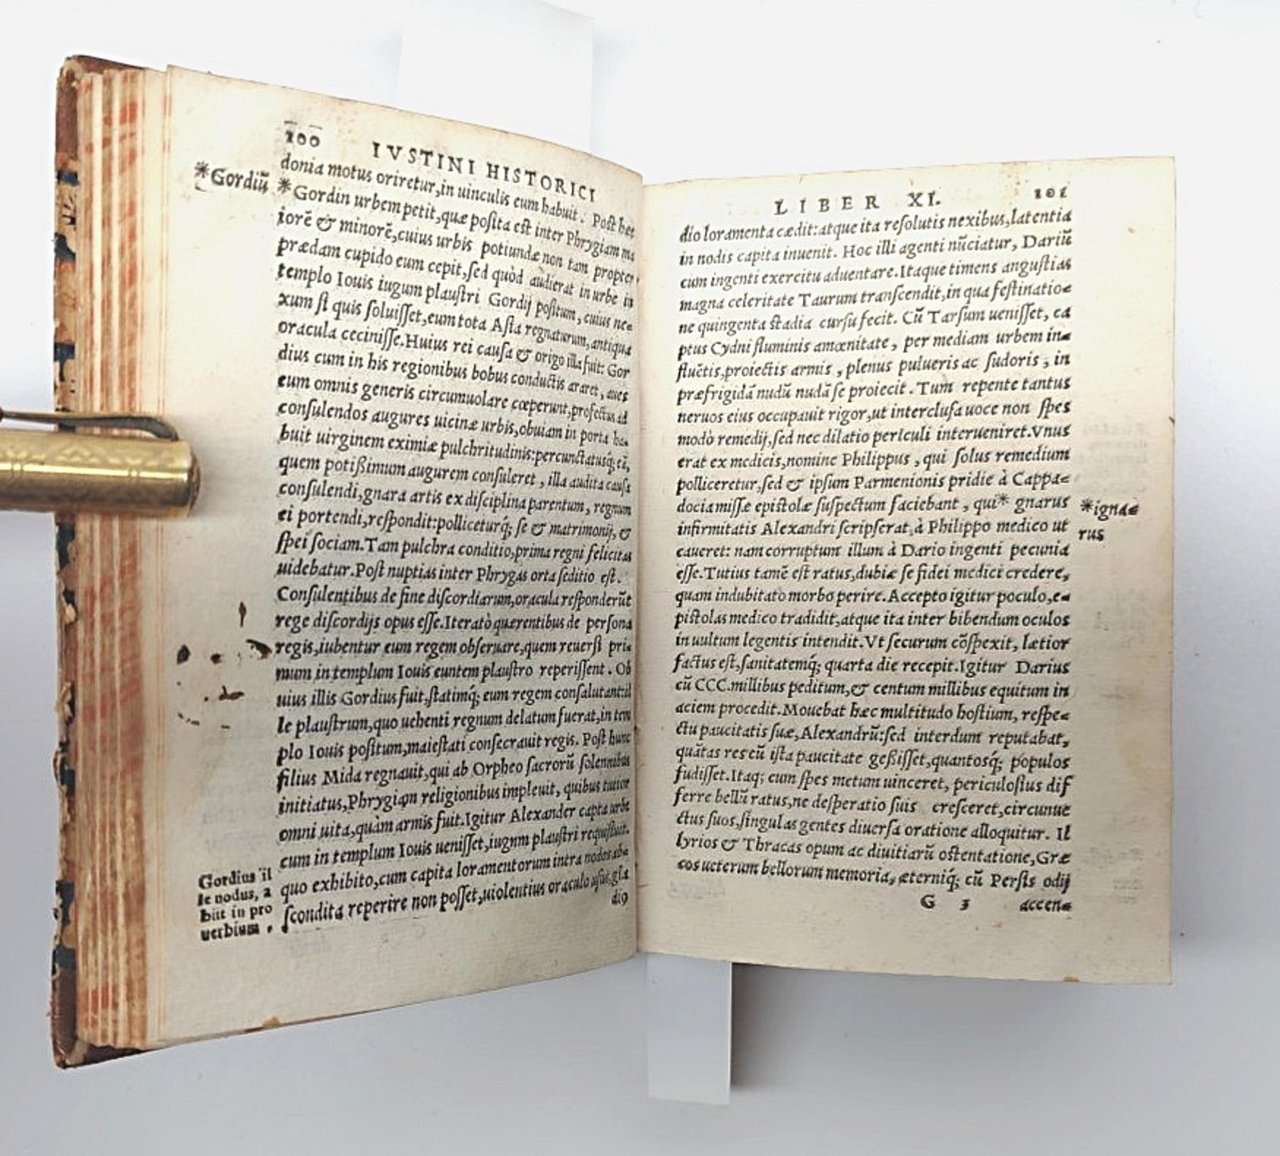 100 IVSTINI HISTORICI
donia motus oriretur, in uinculis eum habuit. Post hæc
*Gordiũ
*Gordin urbem petit, quæ posita est inter Phrygiam ma
iorẽ & minorẽ, cuius urbis potiundæ non tam propter
prædam cupido eum cepit, sed quòd audierat in urbe in
templo Iouis iugum plaustri Gordij positum, cuius ne=
xum si quis soluisset, eum tota Asia regnaturum, antiqua
oracula cecinisse. Huius rei causa & origo illa fuit: Gor
dius cum in his regionibus bobus conductis araret, aues
eum omnis generis circumuolare cœperunt, profectus ad
consulendos augures uicinæ urbis, obuiam in porta ha=
buit uirginem eximiæ pulchritudinis: percunctatusq; eũ,
quem potißimum augurem consuleret, illa audita causa
consulendi, gnara artis ex disciplina parentum, regnum
ei portendi, respondit: polliceturq; se & matrimonij, &
spei sociam. Tam pulchra conditio, prima regni felicitas
uidebatur. Post nuptias inter Phrygas orta seditio est.
Consulentibus de fine discordiarum, oracula responderũt
rege discordijs opus esse. Iteratò quærentibus de persona
regis, iubentur eum regem obseruare, quem reuersi pri=
mum in templum Iouis euntem plaustro reperissent. Ob
uius illis Gordius fuit, statimq; eum regem consalutant il
le plaustrum, quo uehenti regnum delatum fuerat, in tem
plo Iouis positum, maiestati consecrauit regis. Post hunc
filius Mida regnauit, qui ab Orpheo sacrorũ solennibus
initiatus, Phrygiam religionibus impleuit, quibus tutior
omni uita, quàm armis fuit. Igitur Alexander capta urbe
cum in templum Iouis uenisset, iugum plaustri requisiuit.
quo exhibito, cum capita loramentorum intra nodos abs=
scondita reperire non posset, uiolentius oraculo usus, gla
dio
Gordius il
le nodus, a
biit in pro
uerbium.
LIBER XI. 101
dio loramenta cædit: atque ita resolutis nexibus, latentia
in nodis capita inuenit. Hoc illi agenti nũciatur, Dariũ
cum ingenti exercitu aduentare. Itaque timens angustias
magna celeritate Taurum transcendit, in qua festinatio=
ne quingenta stadia cursu fecit. Cũ Tarsum uenisset, ca
ptus Cydni fluminis amœnitate, per mediam urbem in=
fluẽtis, proiectis armis, plenus pulueris ac sudoris, in
præfrigidã nudũ nudã se proiecit. Tum repente tantus
neruos eius occupauit rigor, ut interclusa uoce non spes
modò remedij, sed nec dilatio periculi interueniret. Vnus
erat ex medicis, nomine Philippus, qui solus remedium
polliceretur, sed & ipsum Parmenionis pridie à Cappa=
docia missæ epistolæ suspectum faciebant, qui* gnarus
infirmitatis Alexandri scripserat, à Philippo medico ut
caueret: nam corruptum illum à Dario ingenti pecunia
esse. Tutius tamẽ est ratus, dubiæ se fidei medici credere,
quam indubitato morbo perire. Accepto igitur poculo, e=
pistolas medico tradidit, atque ita inter bibendum oculos
in uultum legentis intendit. Vt securum cõspexit, lætior
factus est, sanitatemq; quarta die recepit. Igitur Darius
cũ CCC. millibus peditum, & centum millibus equitum in
aciem procedit. Mouebat hæc multitudo hostium, respe=
ctu paucitatis suæ, Alexandrũ: sed interdum reputabat,
quãtas res cũ ista paucitate geßisset, quantosq; populos
fudisset. Itaq; cum spes metum uinceret, periculosius dif
ferre bellũ ratus, ne desperatio suis cresceret, circunue
ctus suos, singulas gentes diuersa oratione alloquitur. Il
lyrios & Thracas opum ac diuitiarũ ostentatione, Græ
cos ueterum bellorum memoria, æterniq; cũ Persis odij
G 3 accen=
*igna=
rus